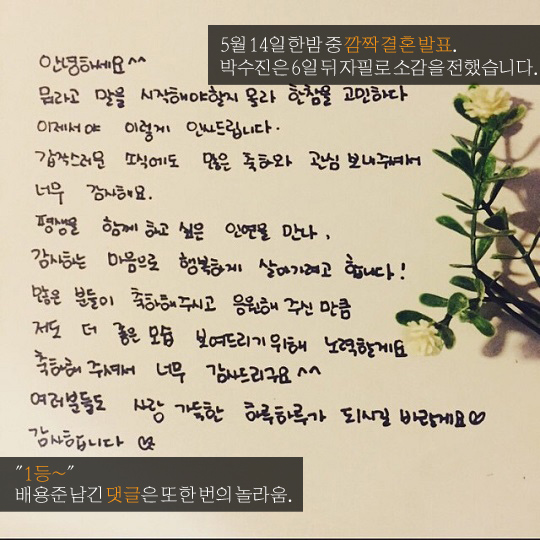 5월 14일 한밤 중 깜짝 결혼 발표.
박수진은 6일 뒤 자필로 소감을 전했습니다.
안녕하세요^^
뭐라고 말을 시작해야할지 몰라 한참을 고민하다
이제서야 이렇게 인사드립니다.
갑작스러운 소식에도 많은 축하와 관심 보내주셔서
너무 감사해요.
평생을 함께 하고 싶은 인연을 만나,
감사하는 마음으로 행복하게 살아가려고 합니다!
많은 분들이 축하해주시고 응원해 주신 만큼
저도 더 좋은 모습 보여드리기 위해 노력할게요
축하해 주셔서 너무 감사드리구요^^
여러분들도 사랑 가득한 하루하루가 되시길 바랄게요♡
감사합니다 ♡
"1등~"
배용준 남긴 댓글은 또 한 번의 놀라움.